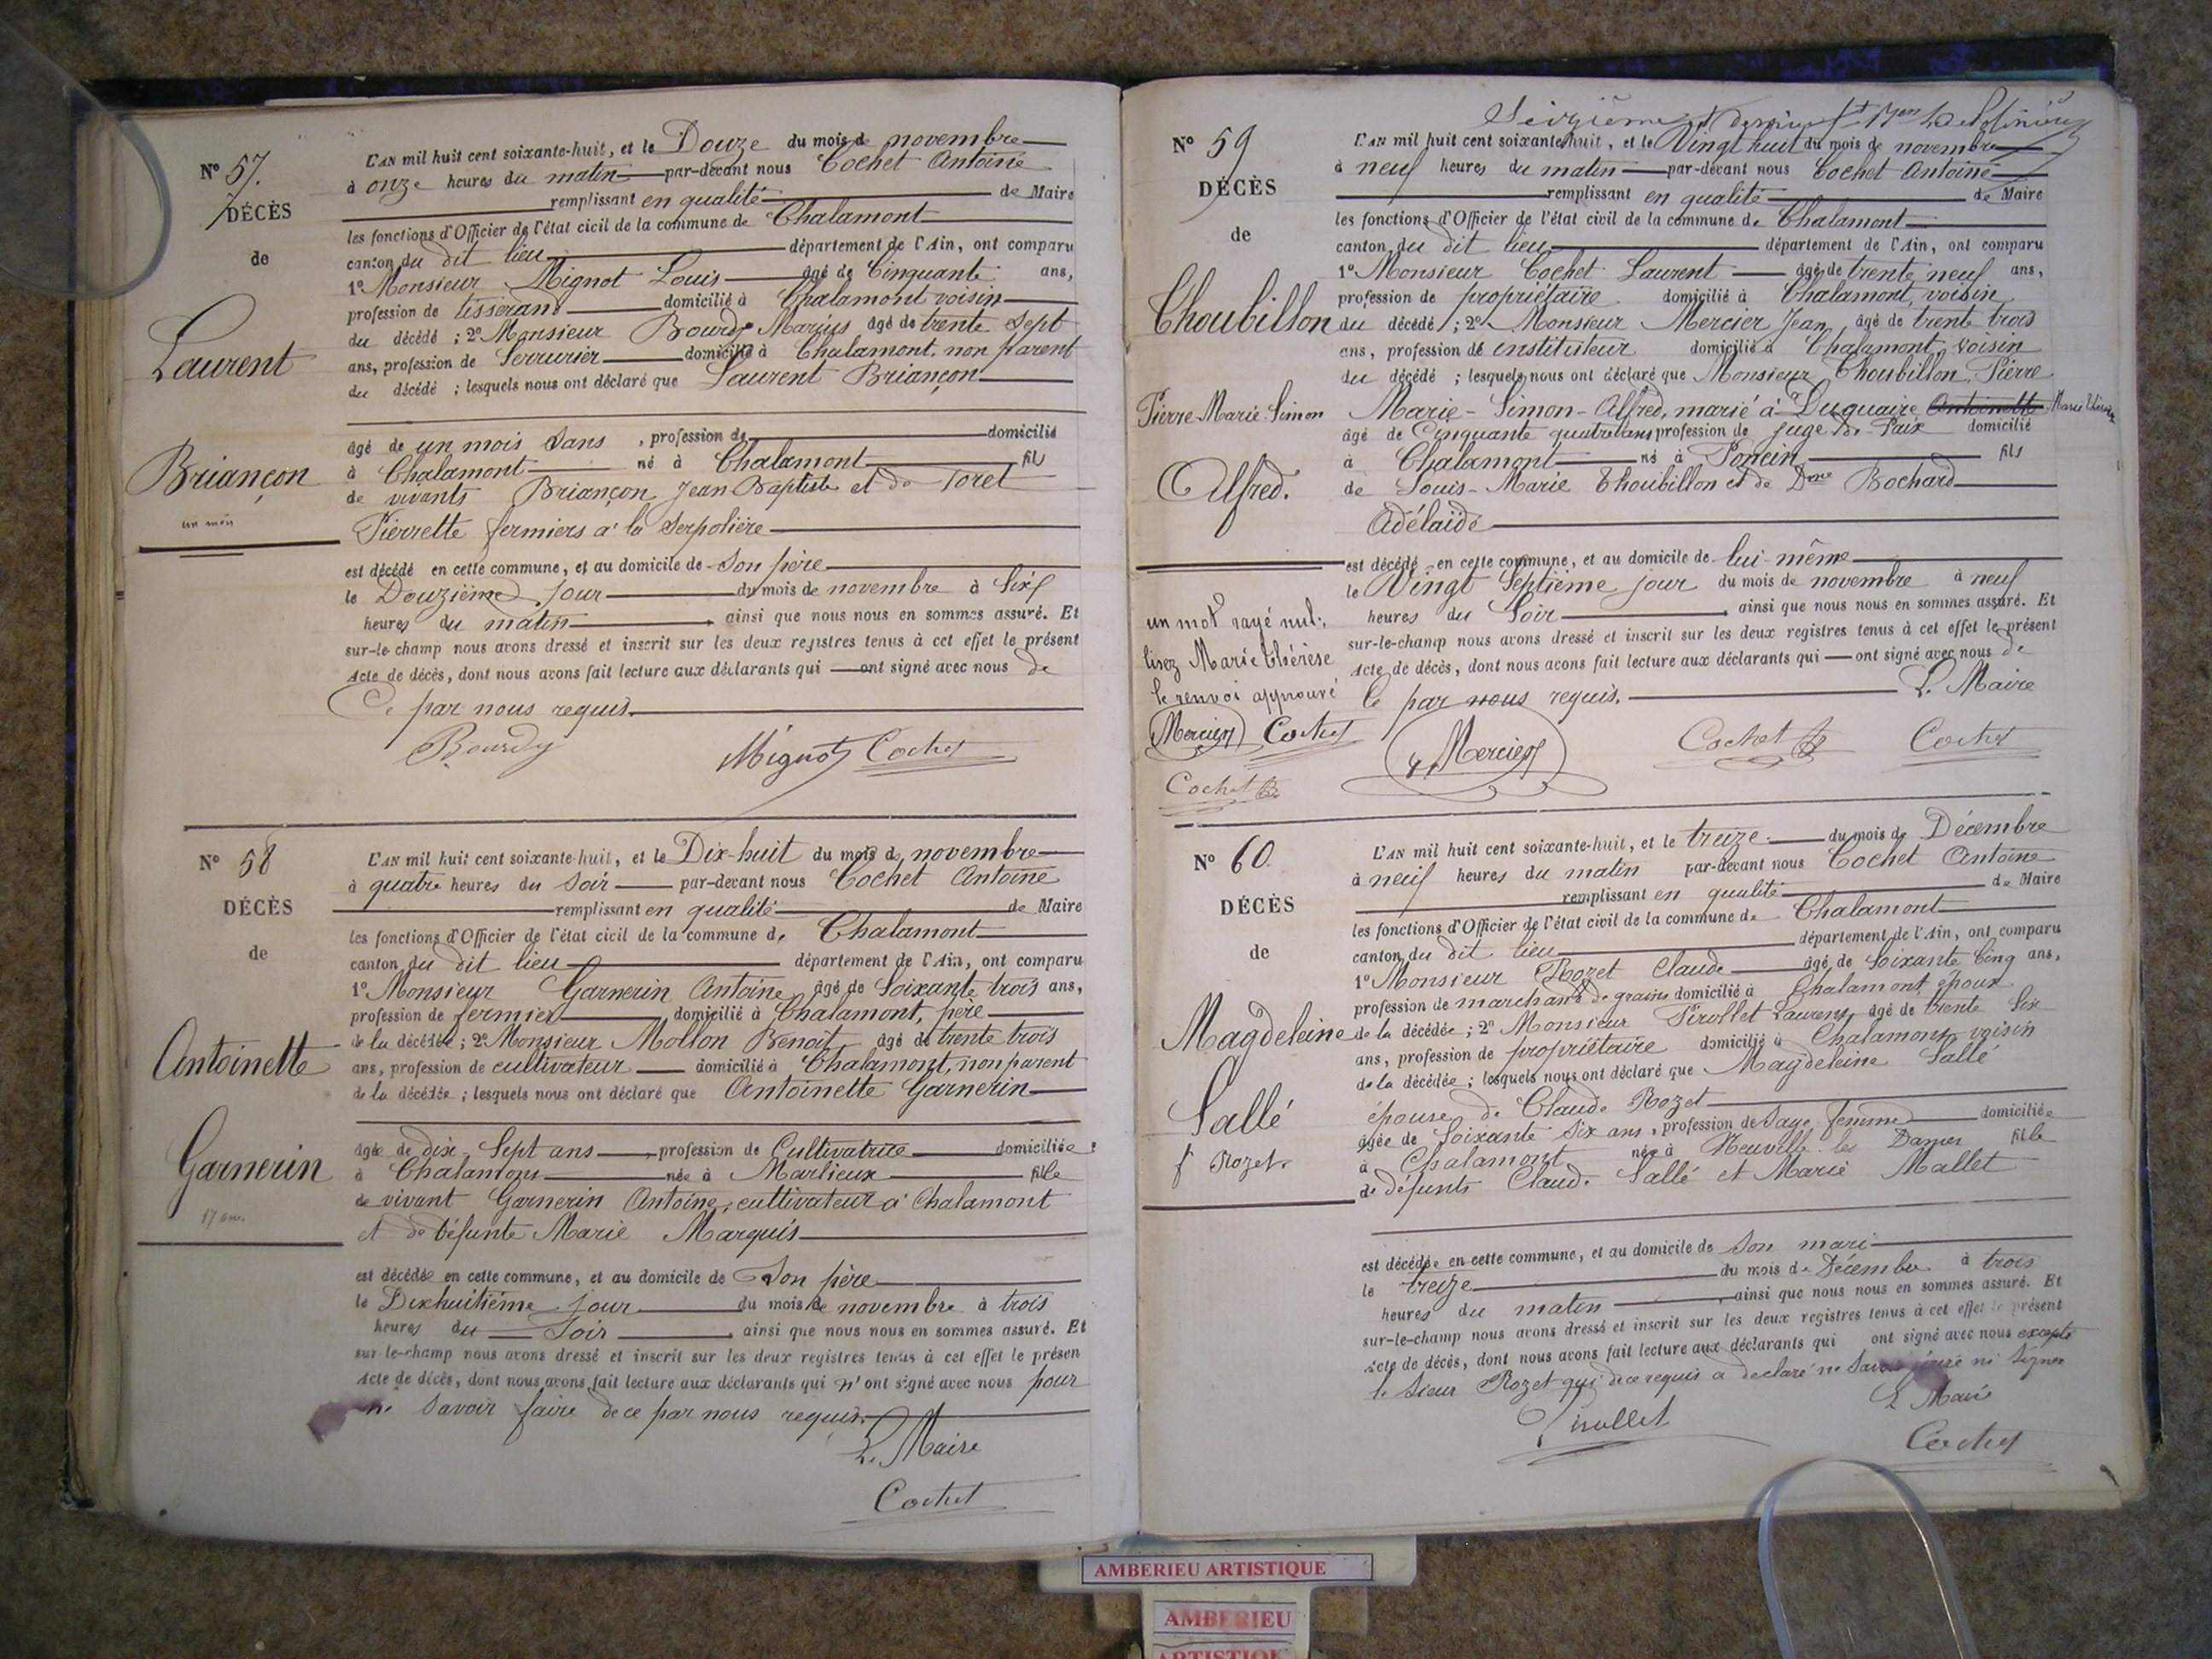 N° 57.
DÉCÈS
de
Laurent
Briançon
un mois
L'AN mil huit cent soixante-huit, et le Douze du mois de novembre
à onze heures du matin par-devant nous Cochet Antoine
remplissant en qualité de Maire
les fonctions d'Officier de l'état cicil de la commune de Chalamont
canton du dit lieu département de l'Ain, ont comparu
1° Monsieur Mignot Louis âgé de Cinquante ans,
profession de tisserand domicilié à Chalamont voisin
du décédé ; 2° Monsieur Bourdy Marius âgé de trente Sept
ans, profession de Serrurier domicilié à Chalamont, non parent
du décédé ; lesquels nous ont déclaré que Laurent Briançon
âgé de un mois Sans , profession de domicilié
à Chalamont né à Chalamont fils
de vivants Briançon Jean-Baptiste et de Toret
Pierrette fermiers à la Serpolière
est décédé en cette commune, et au domicile de Son père
le Douzième jour du mois de novembre à Six
heures du matin ainsi que nous nous en sommes assuré. Et
sur-le-champ nous avons dressé et inscrit sur les deux registres tenus à cet effet le présent
Acte de décès, dont nous avons fait lecture aux déclarants qui ont signé avec nous de
Ce par nous requis.
Bourdy Mignot Cochet
N° 58
DÉCÈS
de
Antoinette
Garnerin
17 ans.
L'AN mil huit cent soixante-huit, et le Dix-huit du mois de novembre
à quatre heures du Soir par-devant nous Cochet Antoine
remplissant en qualité de Maire
les fonctions d'Officier de l'état cicil de la commune de Chalamont
canton du dit lieu département de l'Ain, ont comparu
1° Monsieur Garnerin Antoine âgé de Soixante trois ans,
profession de fermier domicilié à Chalamont, père
de la décédée ; 2° Monsieur Mollon Benoit âgé de trente trois
ans, profession de cultivateur domicilié à Chalamont, non parent
de la décédée ; lesquels nous ont déclaré que Antoinette Garnerin
âgée de dix Sept ans , profession de Cultivatrice domiciliée
à Chalamont née à Marlieux fille
de vivant Garnerin Antoine, cultivateur à Chalamont
et de défunte Marie Marquis
est décédée en cette commune, et au domicile de Son père
le Dixhuitième jour du mois de novembre à trois
heures du Soir ainsi que nous nous en sommes assuré. Et
sur-le-champ nous avons dressé et inscrit sur les deux registres tenus à cet effet le présen
Acte de décès, dont nous avons fait lecture aux déclarants qui n'ont signé avec nous pour
ne Savoir faire de ce par nous requis.
Le Maire
Cochet
Seizième et dernier
N° 59
DÉCÈS
de
Thoubillon
Pierre-Marie-Simon
Alfred.
un mot rayé nul.
lisez Marie Thérèse
le renvoi approuvé
Mercier Cochet
Cochet
L'AN mil huit cent soixante-huit, et le Vingt huit du mois de novembre
à neuf heures du matin par-devant nous Cochet Antoine
remplissant en qualité de Maire
les fonctions d'Officier de l'état civil de la commune de Chalamont
canton du dit lieu département de l'Ain, ont comparu
1° Monsieur Cochet Laurent âgé de trente neuf ans,
profession de propriétaire domicilié à Chalamont, voisin
du décédé ; 2° Monsieur Mercier Jean âgé de trente trois
ans, profession de instituteur domicilié à Chalamont, voisin
du décédé ; lesquels nous ont déclaré que Monsieur Thoubillon Pierre
Marie-Simon-Alfred, marié à Duquaire Antoinette Marie Thérèse
âgé de Cinquante quatre ans profession de juge de Paix domicilié
à Chalamont né à Poncin fils
de Louis-Marie Thoubillon et de Dme Bochard
Adélaïde
est décédé en cette commune, et au domicile de lui-même
le Vingt Septième jour du mois de novembre à neuf
heures du Soir ainsi que nous nous en sommes assuré. Et
sur-le-champ nous avons dressé et inscrit sur les deux registres tenus à cet effet le présent
Acte de décès, dont nous avons fait lecture aux déclarants qui ont signé avec nous de
Ce par nous requis. Le Maire
Mercier Cochet Cochet
N° 60.
DÉCÈS
de
Magdeleine
Sallé
f Rozet
L'AN mil huit cent soixante-huit, et le treize du mois de Décembre
à neuf heures du matin par-devant nous Cochet Antoine
remplissant en qualité de Maire
les fonctions d'Officier de l'état civil de la commune de Chalamont
canton du dit lieu département de l'Ain, ont comparu
1° Monsieur Rozet Claude âgé de Soixante Cinq ans,
profession de marchand de grains domicilié à Chalamont, époux
de la décédée ; 2° Monsieur Pirollet Laurent âgé de trente Six
ans, profession de propriétaire domicilié à Chalamont voisin
de la décédée ; lesquels nous ont déclaré que Magdeleine Sallé
épouse de Claude Rozet
âgée de Soixante Six ans , profession de Sage femme domiciliée
à Chalamont née à Neuville les Dames fille
de défunts Claude Sallé et Marie Mallet
est décédée en cette commune, et au domicile de Son mari
le treize du mois de Décembre à trois
heures du matin , ainsi que nous nous en sommes assuré. Et
sur-le-champ nous avons dressé et inscrit sur les deux registres tenus à cet effet le présent
Acte de décès, dont nous avons fait lecture aux déclarants qui ont signé avec nous excepté
le Sieur Rozet qui de ce requis a declaré ne Savoir ni Signer
Le Maire
Pirollet Cochet
AMBERIEU ARTISTIQUE
AMBERIEU
ARTISTIQUE